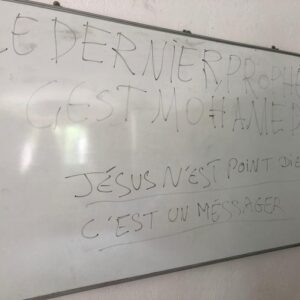 LE DERNIER PROPHE
C'EST MOHAMED
JÉSUS N'EST POINT DIE
C'EST UN MÉSSAGER